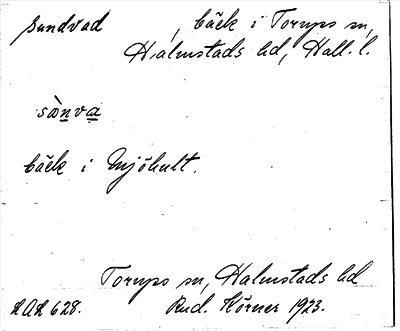 Sundvad, bäck i Torups sn,
Halmstads hd, Hall. l.
sànva
bäck i Mjöhult.
Torups sn, Halmstads hd
HAH 628. Rud. Körner 1923.